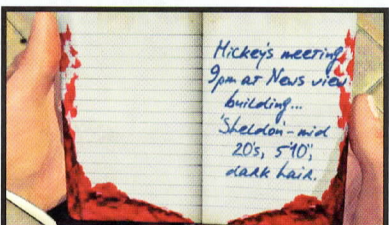 Mickey's meeting,
9pm at News view
building...
'Sheldon' - mid
20's, 5'10",
dark hair.